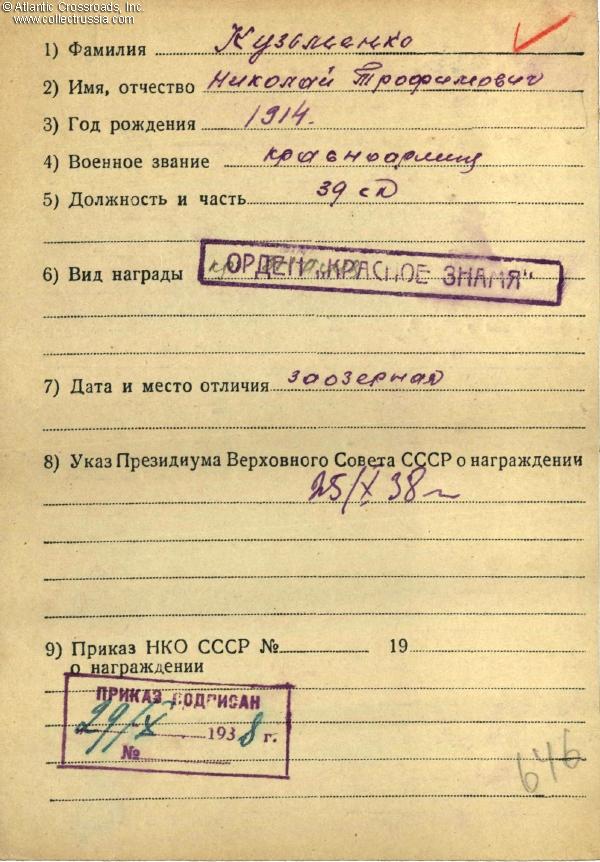 © Atlantic Crossroads, Inc.
www.collectrussia.com
1) Фамилия Кузьменко
2) Имя, отчество Николай Трофимович
3) Год рождения 1914.
4) Военное звание красноармеец
5) Должность и часть 39 сп
6) Вид награды ОРДЕН „КРАСНОЕ ЗНАМЯ“
7) Дата и место отличия заозерная
8) Указ Президиума Верховного Совета СССР о награждении
25/X 38 г
9) Приказ НКО СССР № 19
о награждении
ПРИКАЗ ПОДПИСАН
29/X 1938 г.
№
646